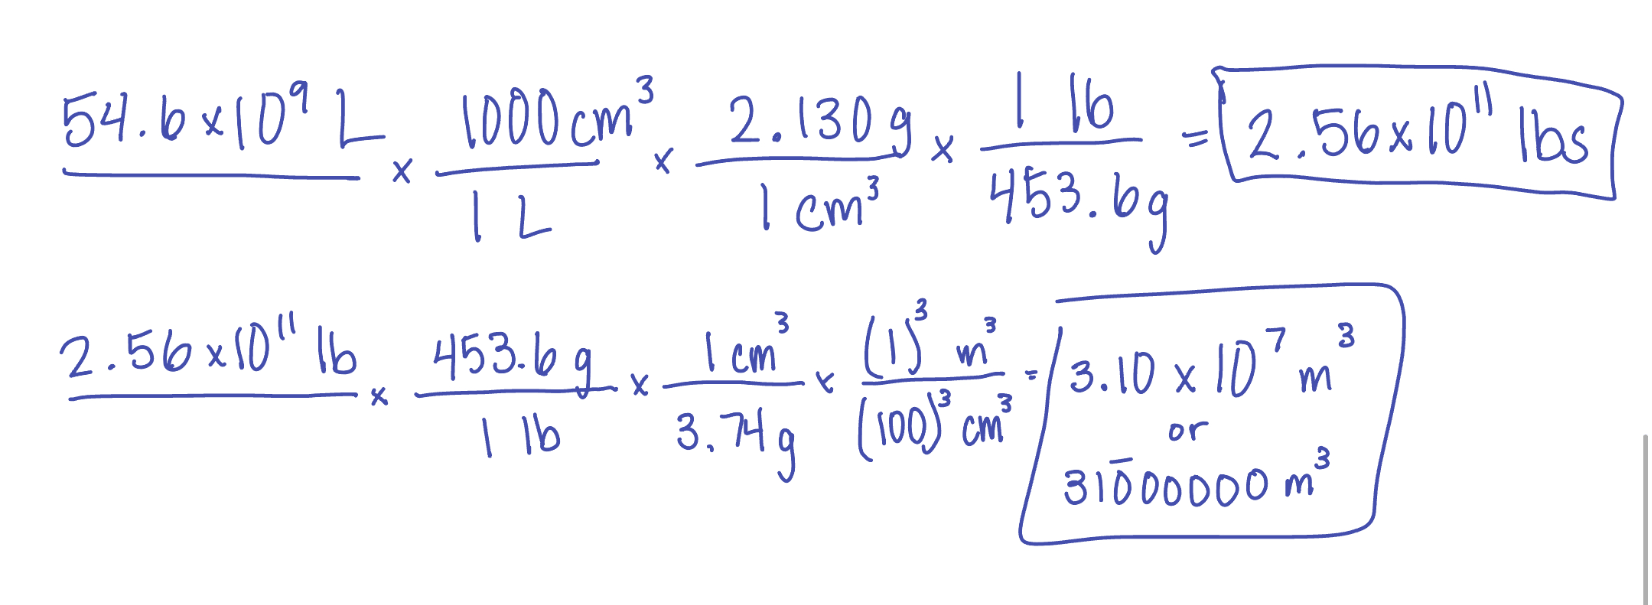 54.6x10⁹ L / x 1000 cm³ / 1 L x 2.130 g / 1 cm³ x 1 lb / 453.6g = 2.56x10¹¹ lbs
2.56x10¹¹ lb / x 453.6 g / 1 lb x 1 cm³ / 3.74g x (1)³ m³ / (100)³ cm³ = 3.10 x 10⁷ m³
or
310̅00000 m³